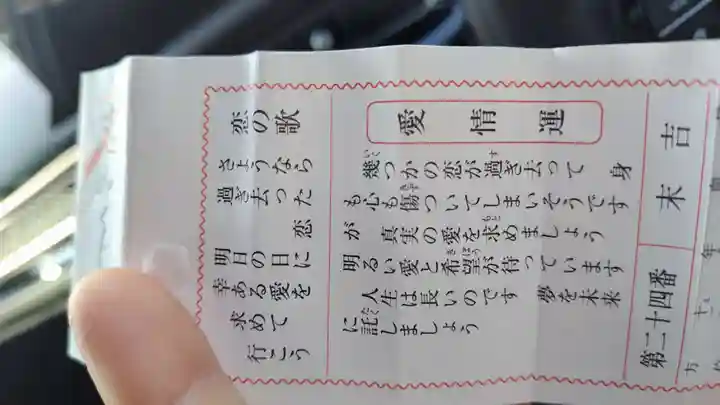 恋の歌
さようなら
過ぎ去った
恋
明日の日に
幸ある愛を
求めて
行こう
愛情運
幾つかの恋が過ぎ去って 身
も心も傷ついてしまいそうです
が 真実の愛を求めましょう
明るい愛と希望が待っています
人生は長いのです 夢を未来
に託しましょう
末吉
第二十四番